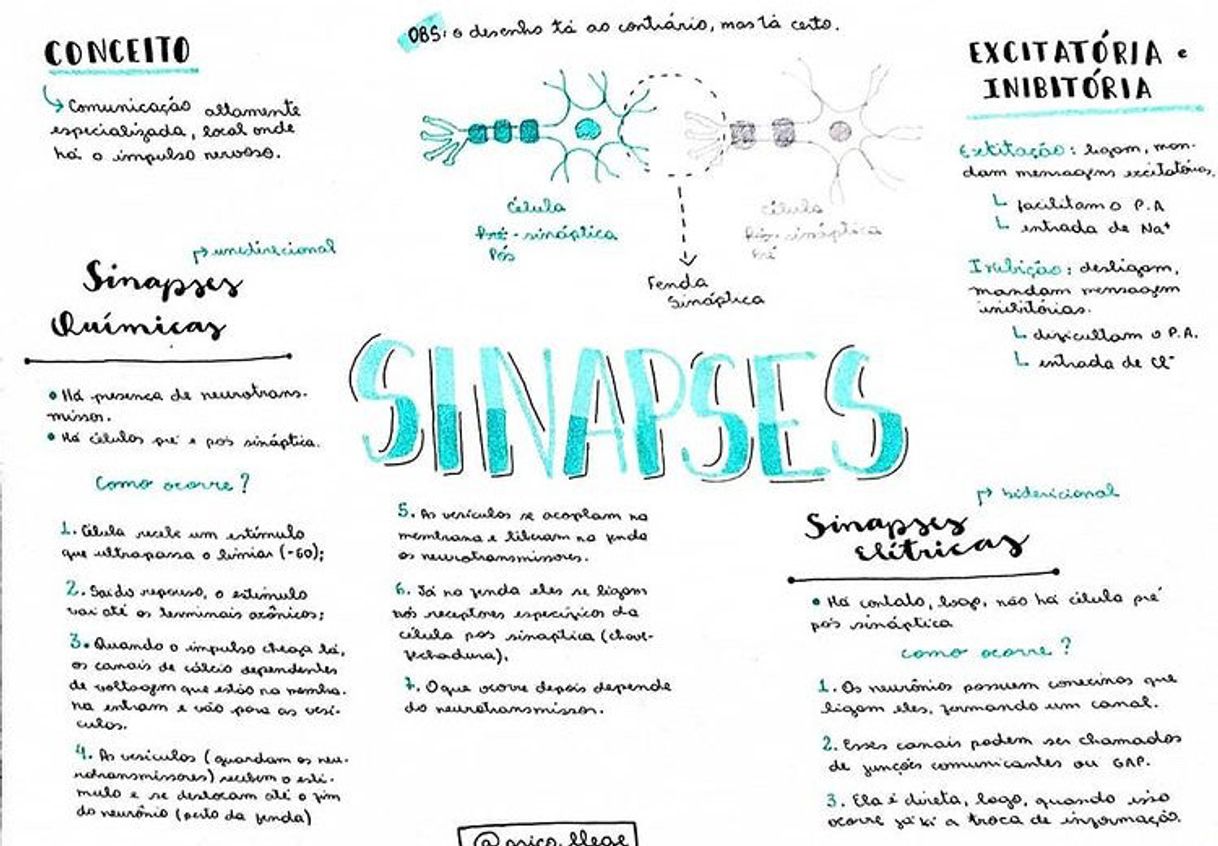 CONCEITO
Comunicação altamente
especializada, local onde
há o impulso nervoso.
OBS: o desenho tá ao contrário, mas tá certo.
Célula
Pré-sináptica
Pós
Célula
Pós-sináptica
Pré
Fenda
Sináptica
EXCITATÓRIA e
INIBITÓRIA
Exitação: ligam, man-
dam mensagens excitatórias.
facilitam o P.A
entrada de Na⁺
Inibição: desligam,
mandam mensagem
inibitórias.
dificultam o P.A.
entrada de Cl⁻
SINAPSES
unidirecional
Sinapses
Químicas
• Há presença de neurotrans-
missor.
• Há células pré e pós sináptica.
Como ocorre?
1. Célula recebe um estímulo
que ultrapassa o limiar (-60);
2. Sai do repouso, o estímulo
vai até os terminais axônicos;
3. Quando o impulso chega lá,
os canais de cálcio dependentes
de voltagem que estão na membra-
na entram e vão para as vesí-
culas.
4. As vesículas (guardam os neu-
rotransmissores) recebem o estí-
mulo e se deslocam até o fim
do neurônio (perto da fenda)
5. As vesículas se acoplam na
membrana e liberam na fenda
os neurotransmissores.
6. Já na fenda eles se ligam
nos receptores específicos da
célula pós sinaptica (chave-
fechadura).
7. O que ocorre depois depende
do neurotransmissor.
bidericional
Sinapses
Elétricas
• Há contato, logo, não há célula pré
pós sináptica
como ocorre?
1. Os neurônios possuem conecinas que
ligam eles, formando um canal.
2. Esses canais podem ser chamados
de junções comunicantes ou GAP.
3. Ela é direta, logo, quando isso
ocorre já há a troca de informação.